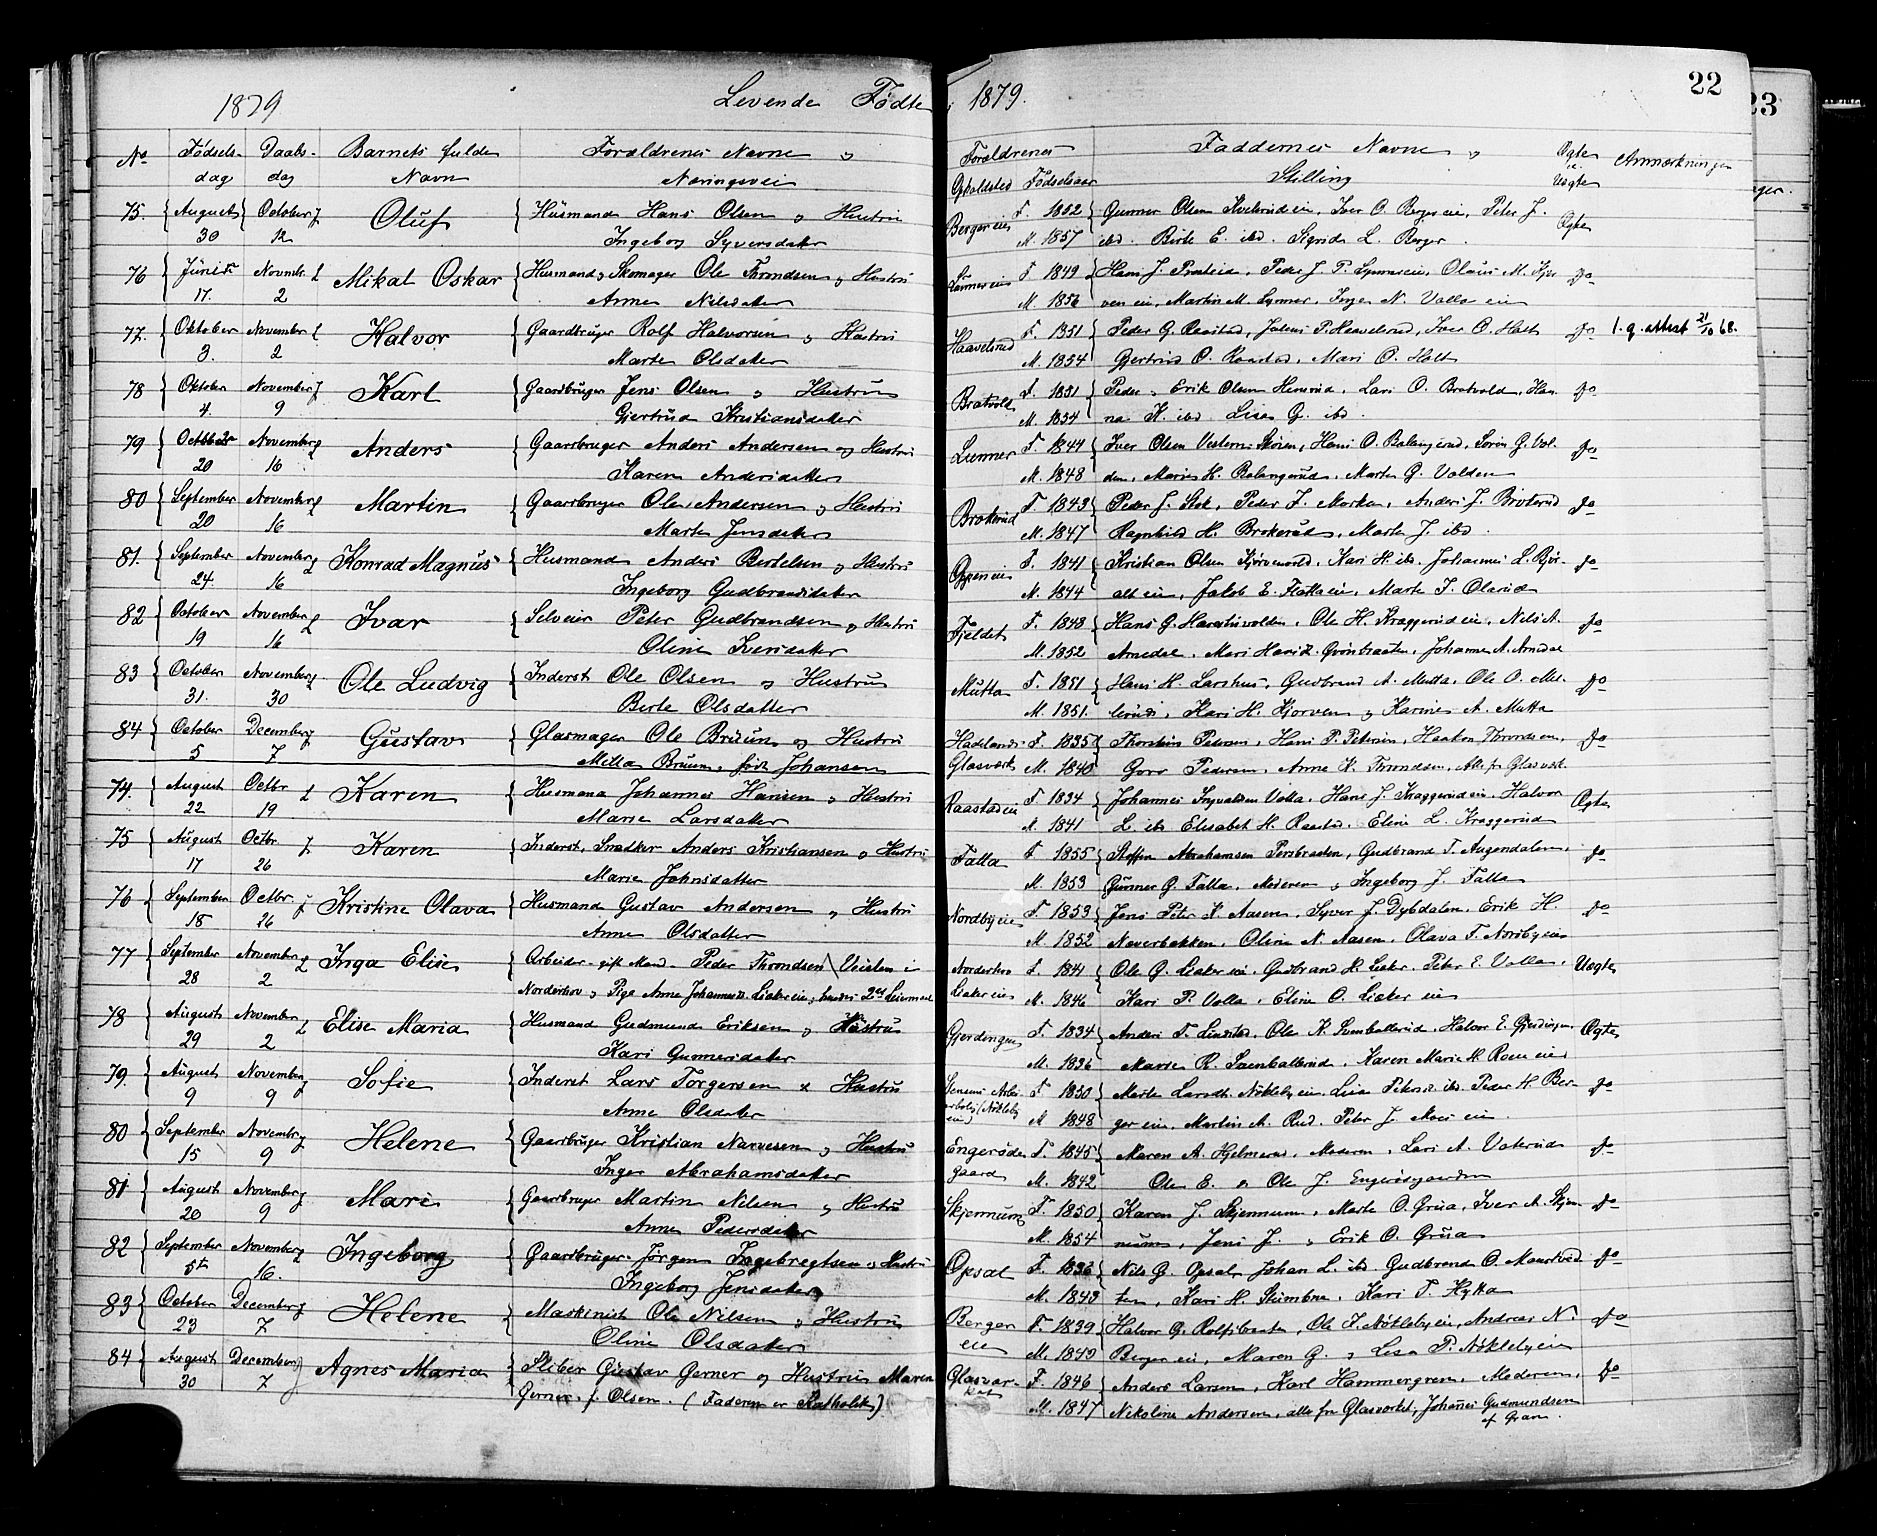 1879. Levende Fødte i 1879. 22
23
No Fødsels- Daabs- Barnets fulde Forældrenes Navne og Forældrenes Faddernes Navne og Ægte Anmærkninger
dag dag Navn Næringsvei Opholdsted Fødselsaar Stilling u. Uægte
75. August October Oluf Husmand Hans Olsen og Hustru Bergereie F. 1852 Gunner Olsen Iver O. Bergereie, Peter J. Ægte
30 12 Ingeborg Syversdatter M. 1857 ibd. Birte E. ibd. Sigrid L. Berger
76 Juni Novembr. Mikal Oskar Husmand og Skomager Ole Throndsen og Hustru Lunnereie F. 1849 Hans J. Peder J. P. Lynnereie, Olaus M. Kjør- do
17. 2 Anne Nilsdatter M. 1856 ven eie, Martin M. Lynner, Inger N. Volla eie
77. Oktober November Halvor Gaardbruger Rolf Halvorsen og Hustru Haavelsrud F. 1851 Peder G. Raastad, Julius P. Haavelsrud, Iver O. Holt do 1. g. attest 21/10 68.
3. 2 Marte Olsdatter M. 1854 Gjertrud O. Raastad, Mari O. Holt
78 Oktober November Karl Gaardbruger Jens Olsen og Hustru Bratvold F. 1851 Peder og Erik Olsen Lars O. Bratvold, Han- do
4. 9 Gjertrud Kristiansdatter M. 1854 na K. ibd. Lisa G. ibd.
79 October November Anders Gaardbruger Anders Andersen og Hustru Lunner F. 1844 Iver Olsen Vestern Skøien, Hans O. Balangrud, Søren G. Vol- do
20 16 Karen Andersdatter M. 1848 den, Maria H. Balangrud, Marte G. Volden
80 September November Martin Gaardbruger Ole Andersen og Hustru Brokerud F. 1843 Peder J. Stok, Peder J. Morken, Anders J. Brokerud do
20 16 Marte Jensdatter M. 1847 Ragnhild H. Brokerud, Marte J. ibd.
81. September November Konrad Magnus Husmand Anders Bertelsen og Hustru Oppeneie F. 1841 Kristian Olsen Kari H. ibd. Johannes L. Bjør- do
24. 16 Ingeborg Gudbrandsdatter M. 1844 alt eie, Jakob E. Flatla eie, Marte J. Olsrud
82 October November Ivar Selveier Peter Gudbrandsen og Hustru Fjeldet F. 1848 Hans G. Ole H. Kraggerud eie, Nils A. do
19 16 Oline Iversdatter M. 1852 Amdal, Mari Grønbraaten, Johanne A. Amdal
83 October November Ole Ludvig Inderst Ole Olsen og Hustru Mutta F. 1851 Hans H. Larshus, Gudbrand A. Mutta, Ole O. do
31. 30 Berte Olsdatter M. 1851. Kari H. Kjørven og Karine A. Mutta
84 October December Gustav Glasmager Ole Bruun og Hustru Hadelands F. 1835 Thorstein Petersen, Hans P. Petersen, Haakon Throndsen, do
5 7 Milla Bruun, født Johansen Glasværk M. 1840 Goro Pedersen, Anne K. Throndsen, Alle fr. Glasværk.
74. August Octbr Karen Husmand Johannes Hansen og Hustru Raastadeie F. 1834 Johannes Ingvaldsen Volla, Hans J. Kraggerud eie, Halvor Ægte
22 19 Marie Larsdatter M. 1841 L. ibd. Elisabet H. Raastad, Eline L. Kraggerud
75 August Octbr. Karen Inderst, Snedker Anders Kristiansen og Hustru Falla F. 1855 Steffen Abrahamsen Persbraaten, Gudbrand T. Augendalen, do
17 26 Marie Johnsdatter M. 1853 Gunner G. Falla, Moderen og Ingeborg J. Falla
76 September Octbr Kristine Olava Husmand Gustav Andersen og Hustru Nordbyeie F. 1853 Jens Peter K. Aasen, Syver J. Dybdalen, Erik H. do
18 26 Anne Olsdatter M. 1852 Naverbakken, Oline N. Aasen, Olava T. Nordbyeie
77 September November Inga Elise Arbeider gift Mand Peder Throndsen Veisten i Norderhov F. 1841 Ole G. Liaker eie, Gudbrand H. Liaker, Peter E. Volla, Uægte
28 2 Norderhov og Pige Anne Johannesd. Liaker eie, hendes 2det Leiermaal Liaker eie M. 1846 Kari P. Volla, Eline O. Liaker eie
78 August November Elise Maria Husmand Gudmund Eriksen og Hustru Gjerdingen F. 1834 Anders T. Lindstad, Ole K. Svenballerud, Halvor E. Gjerdingen, Ægte
29 2 Kari Gunnersdatter M. 1836 Marie R. Svenballerud, Karen Marie H. Roen eie
79. August November Sofie Inderst Lars Torgersen & Hustru F. 1850 Marte Larsdt. Nøkleby eie, Lisa Petersd. ibd. Peder H. Ber- do
9 9 Anne Olsdatter (Nøkleby eie) M 1848 ger eie, Martin A. Rud. Peter J. Moes eie
80 September Novembr Helene Gaardbruger Kristian Narvesen og Hustru Engerøde F. 1845 Maren A. Hjelmerud, Moderen, Lars A. Vaterud do
15 9 Inger Abrahamsdatter gaard M. 1842 Ole E. og Ole J. Engerøsgaarden
81 August November Mari Gaardbruger Martin Nilsen og Hustru Skjennum F. 1850 Karen J. Skjennum, Marte O. Grua, Iver A. Skjen- do
20 9 Anne Pedersdatter M. 1854 num, Jens J. og Erik O. Grua
82 September November Ingeborg Gaardbruger Jørgen Ingebregtsen og Hustru Opsal F. 1836 Nils G. Opsal, Johan L. ibd. Gudbrand O. do
5te 16. Ingeborg Jensdatter M. 1843 ten, Kari H. Stumbne, Kari T. Hytta
83 October December Helene Maskinist Ole Nilsen og Hustru Berger F. 1839 Halvor G. Rolfsbraaten, Ole J. Nøkleby eie, Andreas N. do
23 7 Oline Olsdatter eie M. 1849 Berger eie, Maren G. og Lisa P. Nøkleby eie
84 August December Agnes Maria Sliber Gustav Gerner og Hustru Maren Glasvær- F. 1846 Anders Larsen, Karl Hammergren, Moderen, do
30 7 Gerner, f. Olsen. (Faderen er Katholik) ket M. 1847 Nikoline Andersen, alle fra Glasværket, Johannes Gudmundsen
af Gran.